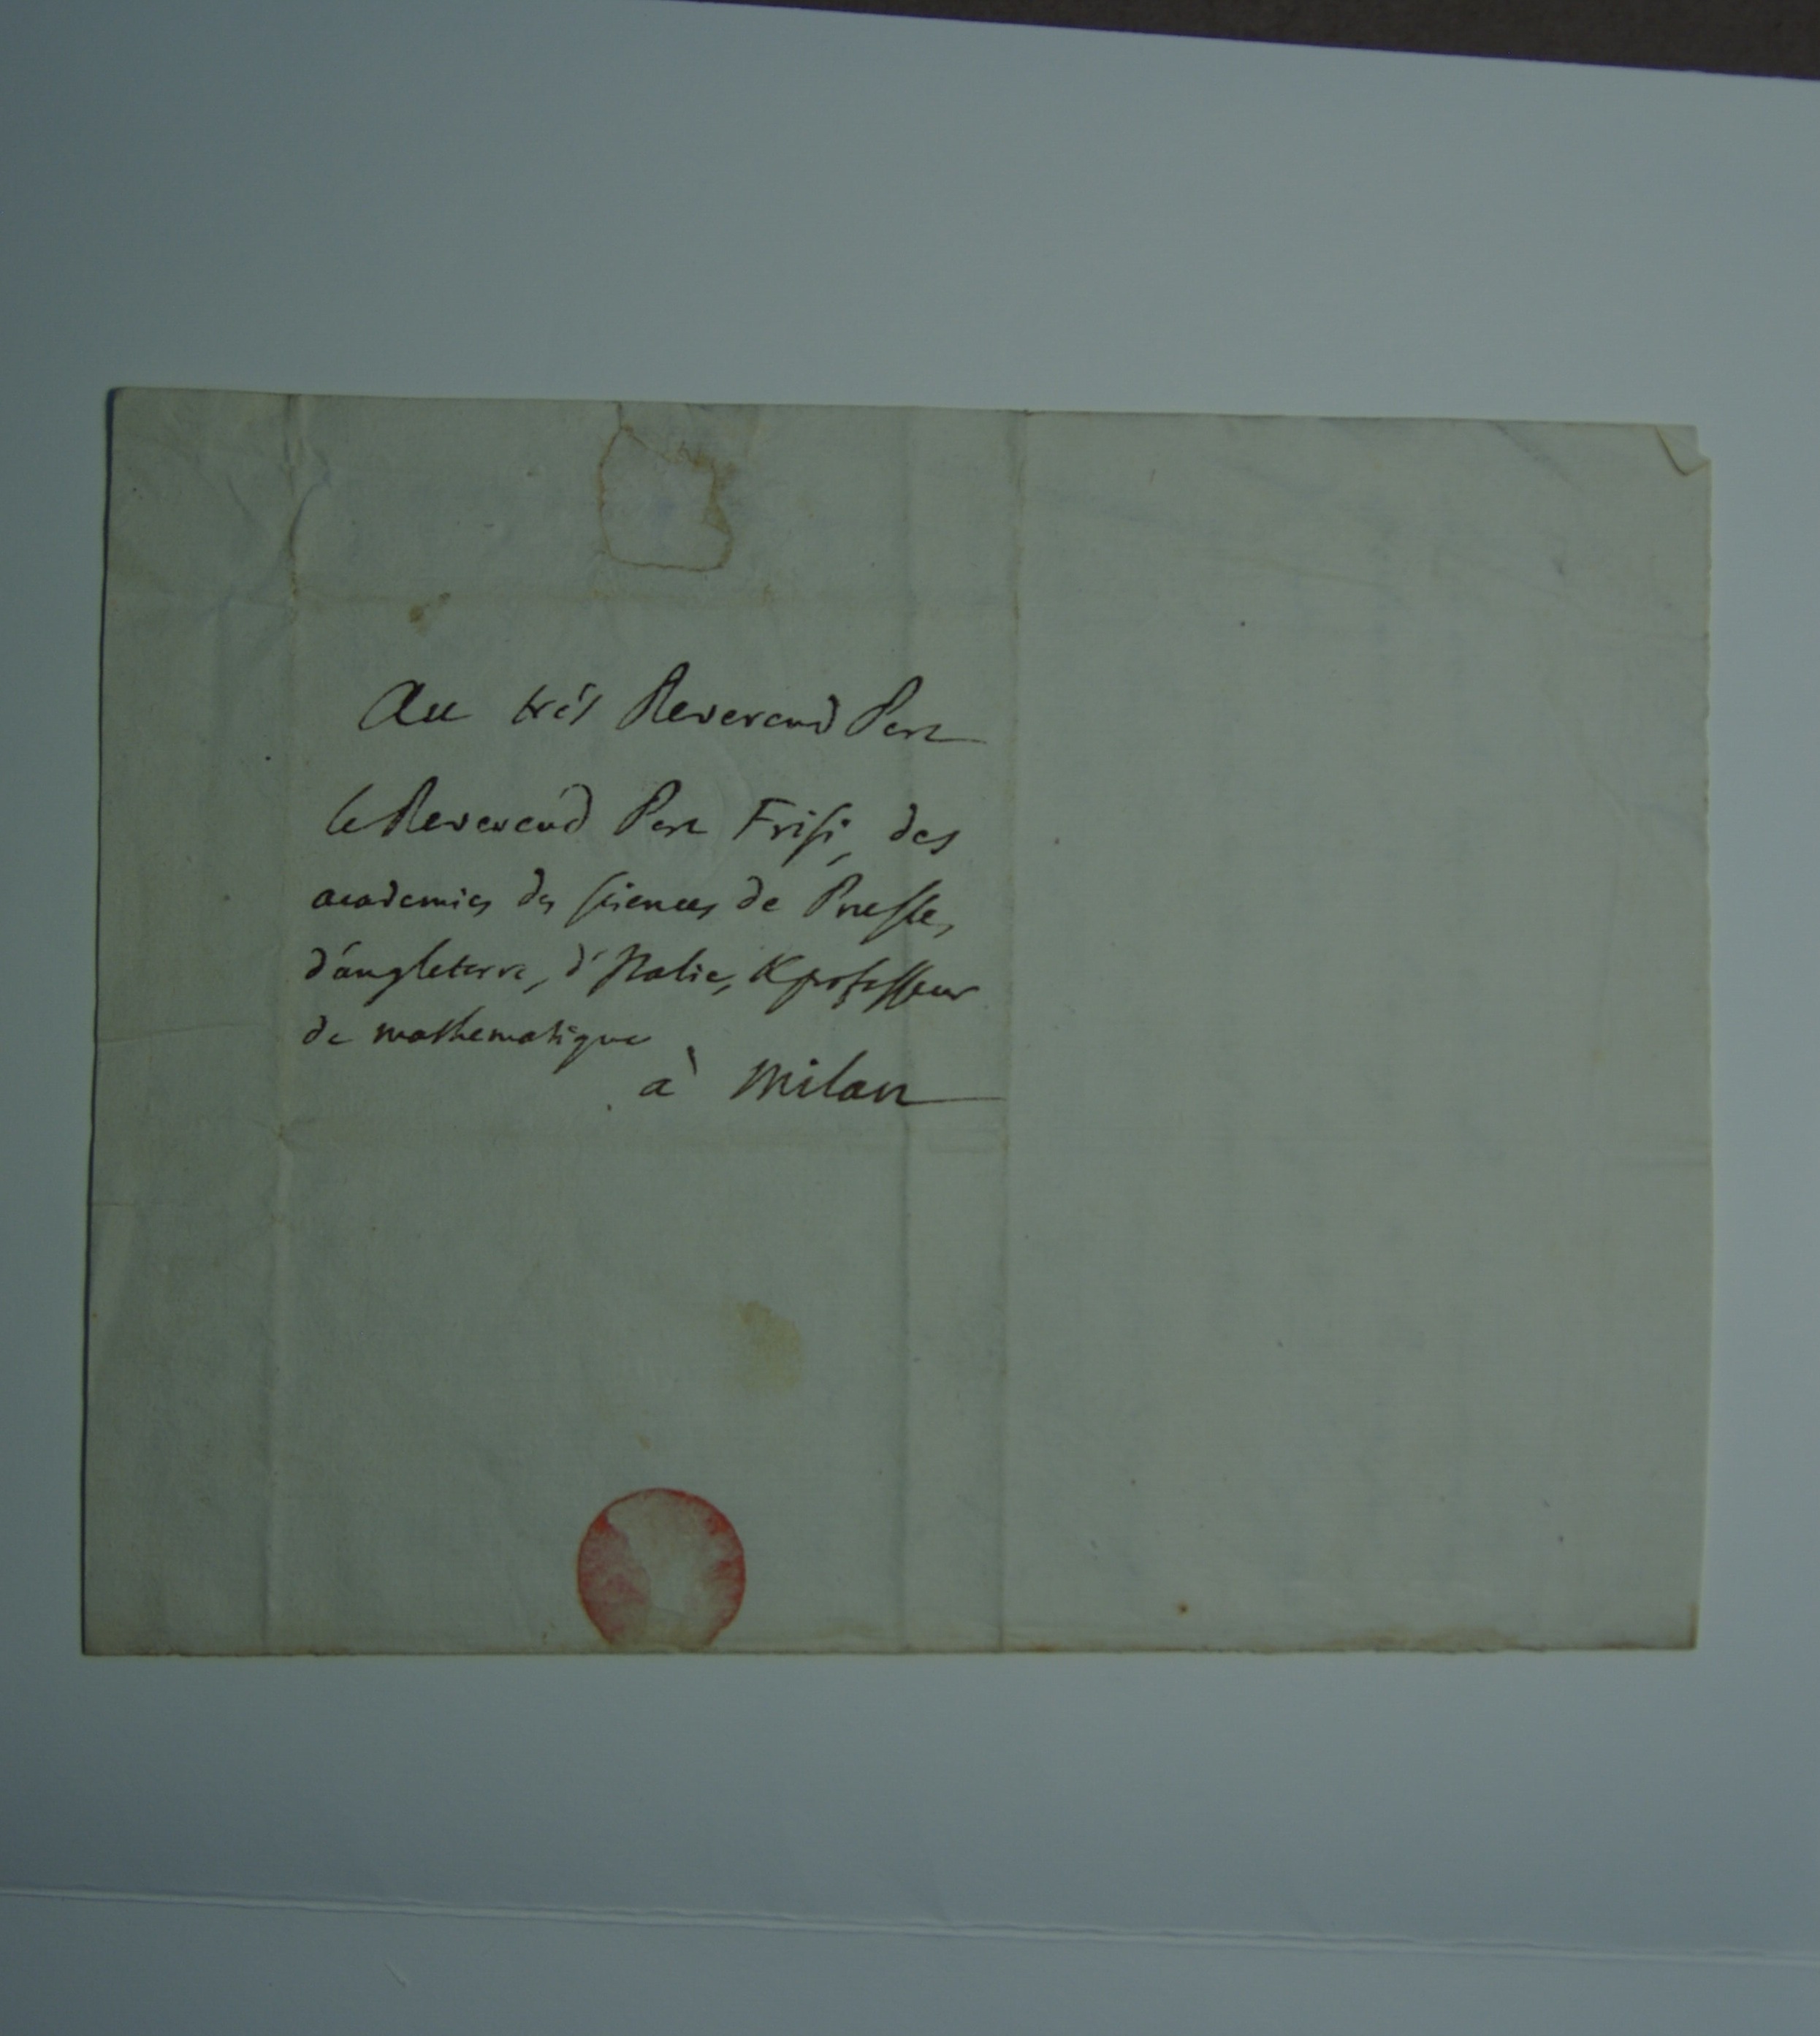 Au trés Reverend Pere
le Reverend Pere Frisi, des
academies des sciences de Prusse,
d'angleterre, d'Italie, & professeur
de mathematique
à Milan